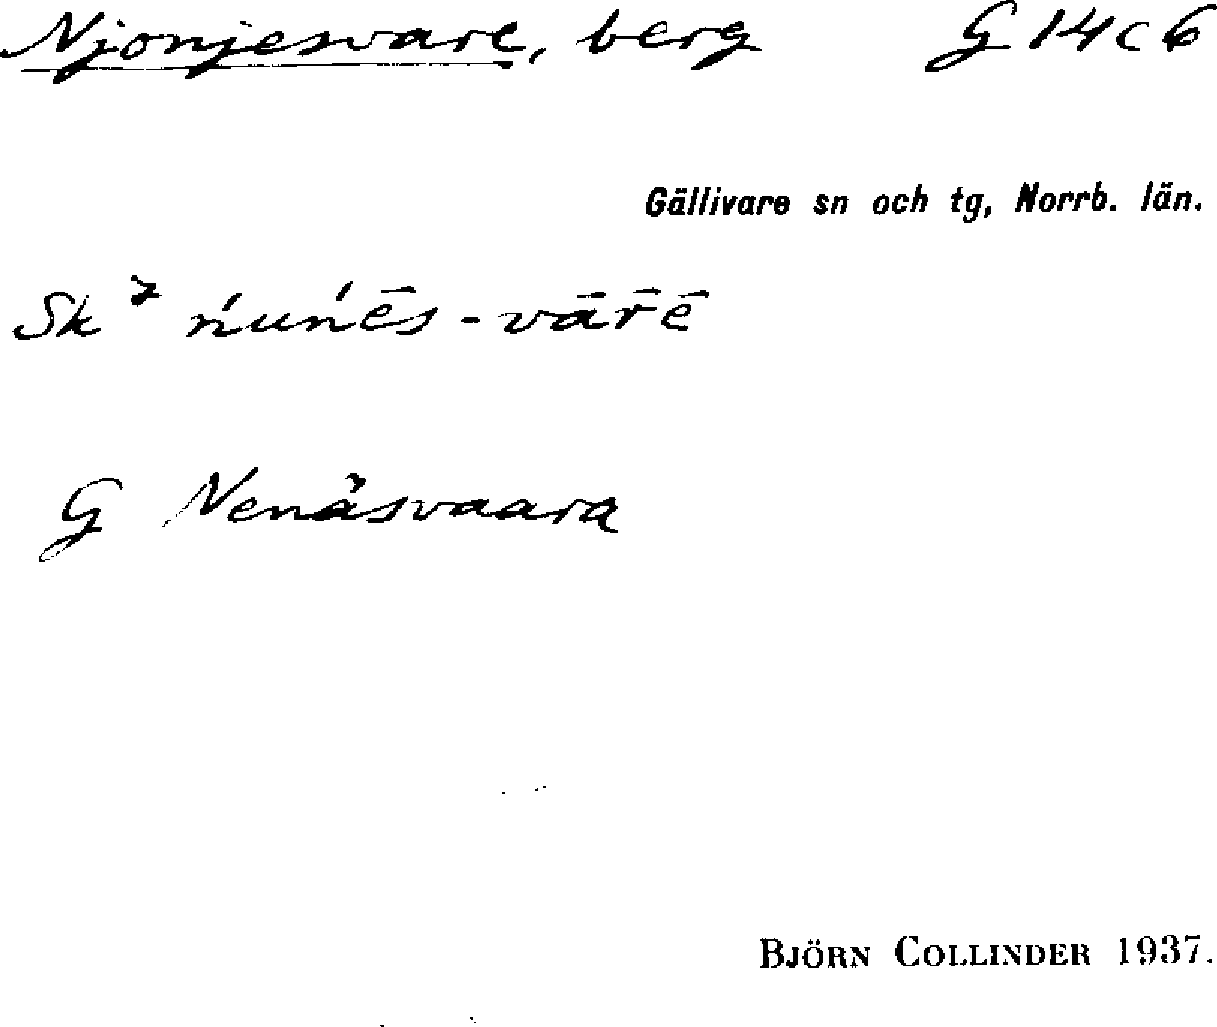 Njonjesvare, berg G 14 c 6
Gällivare sn och tg, Norrb. län.
Sk ⁊ ńuńēs - vār̄ē
G Nenäsvaara
BJÖRN COLLINDER 1937.